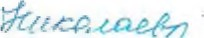 Николаевъ